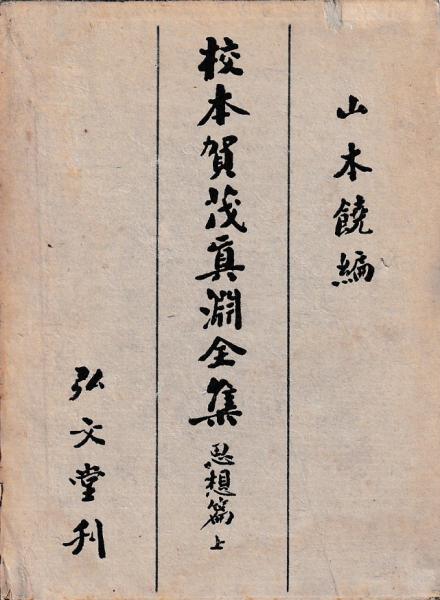 山本饒編
校本賀茂真淵全集 思想篇 上
弘文堂刊